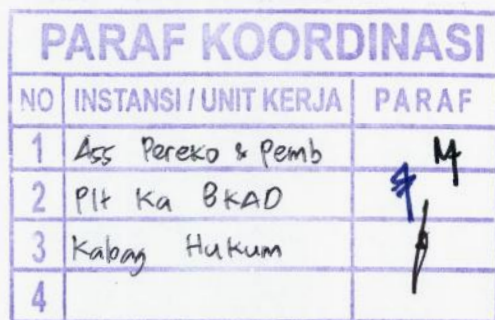 PARAF KOORDINASI
NO INSTANSI / UNIT KERJA PARAF
1 Ass Pereko & Pemb
2 Plt Ka BKAD
3 Kabag Hukum
4